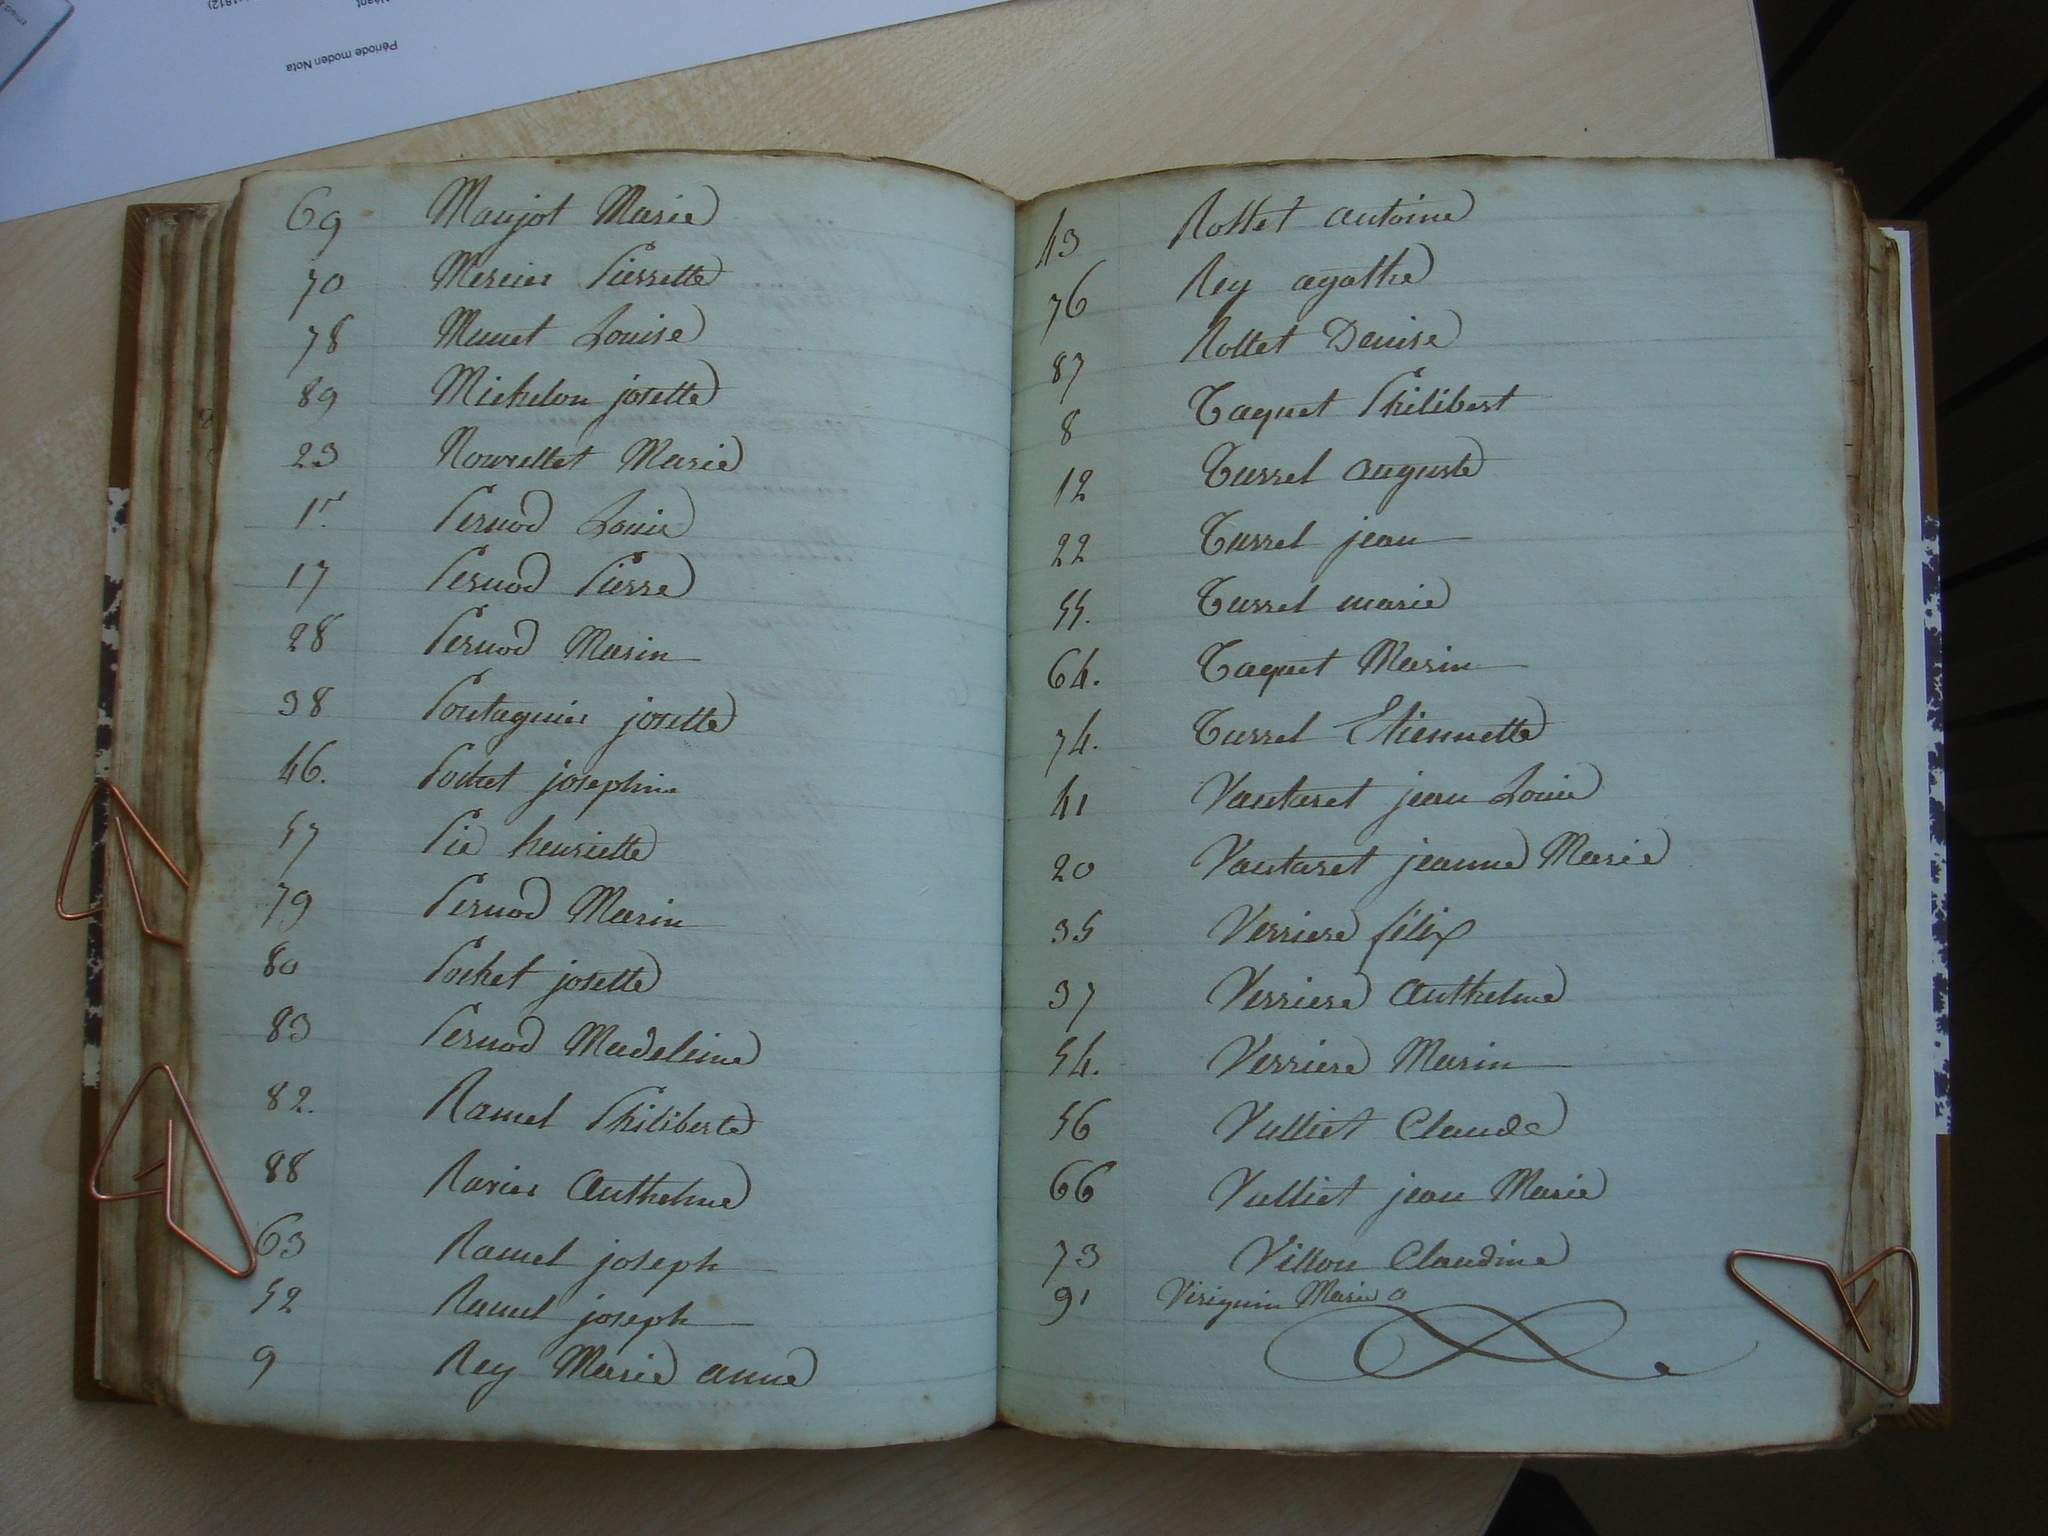 1812)
Période moden Nota
69 Maujot Marie
70 Mercier Pierrette
78 Munet Louise
89 Michelon josette
23 Nourrellet Marie
1r. Pernod Louise
17 Pernod Pierre
28 Pernod Marin
38 Portaguier josette
46. Pochet josephine
57 Pie henriette
79 Pernod Marin
80 Pochet josette
83 Pernod Madeleine
82. Ramel Philiberte
88 Ravier Anthelme
63 Ramel joseph
52 Ramel joseph
9 Rey Marie anne
43 Rosset antoine
76 Rey agathe
87 Rosset Denise
8 Taquet Philibert
12 Turrel auguste
22 Turrel jean
55. Turrel marie
64. Taquet Marin
74. Turrel Etiennette
41 Vautaret jean Louis
20 Vautaret jeanne Marie
35 Verriere félix
37 Verriere Anthelme
54. Verriere Marin
56 Vulliet Claude
66 Vulliet jean Marie
73 Villon Claudine
91 Viriguin Marie